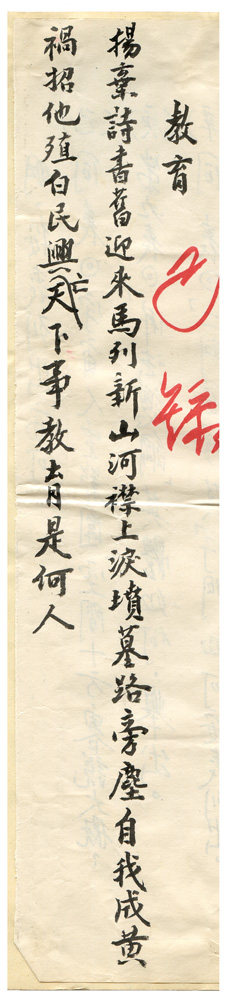 教育
已錄
揚棄詩書舊迎來馬列新山河襟上淚墳墓路旁塵自我成黃
禍招他殖白民興亡天下事教育是何人